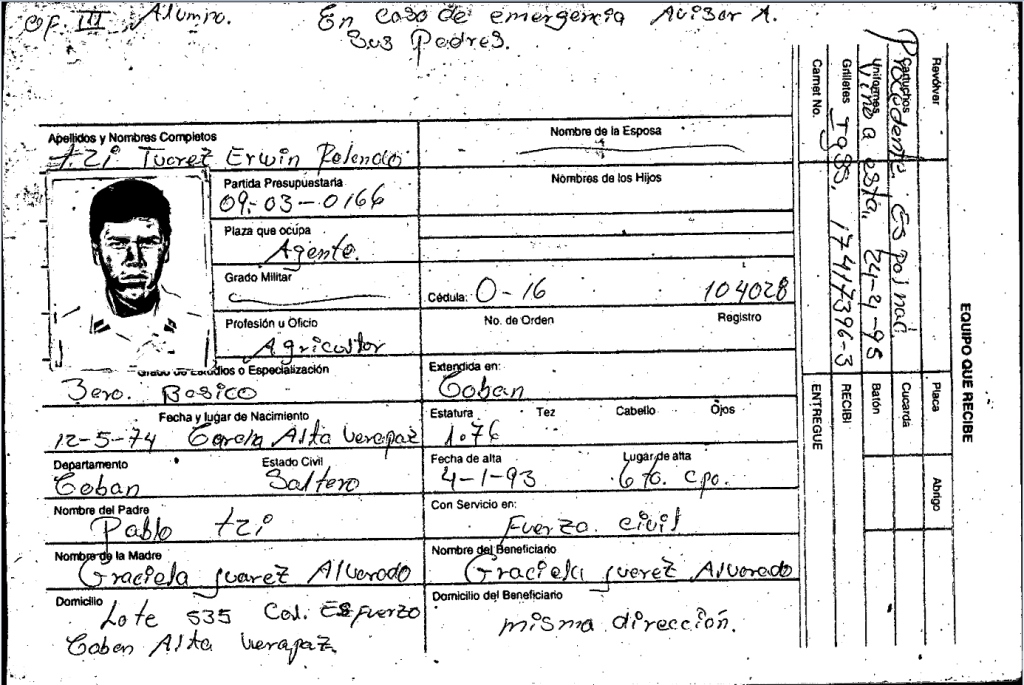 Of. III Alumno. En caso de emergencia Avisar A.
Sus Padres.
Apellidos y Nombres Completos
Tzi Juarez Erwin Rolando
Nombre de la Esposa
Partida Presupuestaria
09-03-0166
Nombres de los Hijos
Plaza que ocupa
Agente.
Grado Militar
Cédula: O-16 104028
Profesión u Oficio
Agricultor
No. de Orden Registro
Grado de Estudios o Especialización
3ero. Basico
Extendida en:
Coban
Fecha y lugar de Nacimiento
12-5-74 Alta Verapaz
Estatura Tez Cabello Ojos
1.76
Departamento Estado Civil
Coban Soltero
Fecha de alta Lugar de alta
4-1-93 6to. Cpo.
Nombre del Padre
Pablo tzi
Con Servicio en:
Fuerza civil
Nombre de la Madre
Graciela juarez Alvarado
Nombre del Beneficiario
Graciela juarez Alvarado
Domicilio
Lote 535 Col. Esfuerzo
Coban Alta Verapaz.
Domicilio del Beneficiario
misma dirección.
EQUIPO QUE RECIBE
Revólver Placa Abrigo
Cartuchos Cucarda
Uniformes Batón
Grilletes RECIBI
Carnet No. ENTREGUE
Procedente. Es Polnac.
Vino a esta, 24-4-95
17417396-3